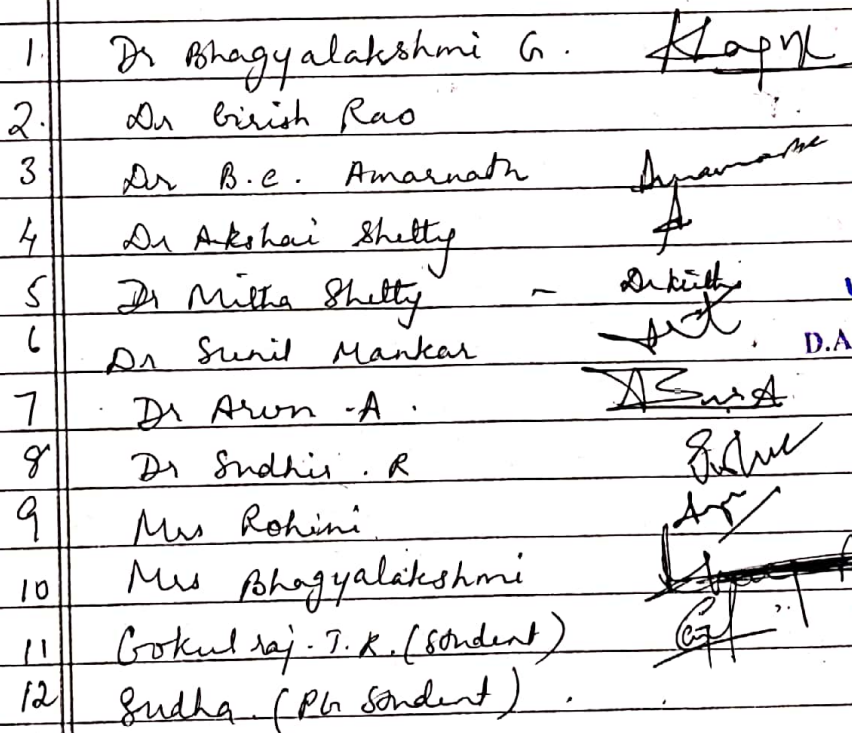 1. Dr Bhagyalakshmi G.
2. Dr Girish Rao
3 Dr B.C. Amarnath
4 Dr Akshai Shetty
5 Dr Mitha Shetty -
6 Dr Sunil Mankar D.A
7 Dr Arun -A.
8 Dr Sudhir. R
9 Mrs Rohini
10 Mrs Bhagyalakshmi
11 Gokul raj. T.K. (Stndent)
12 Sudha. (PG Stndent).